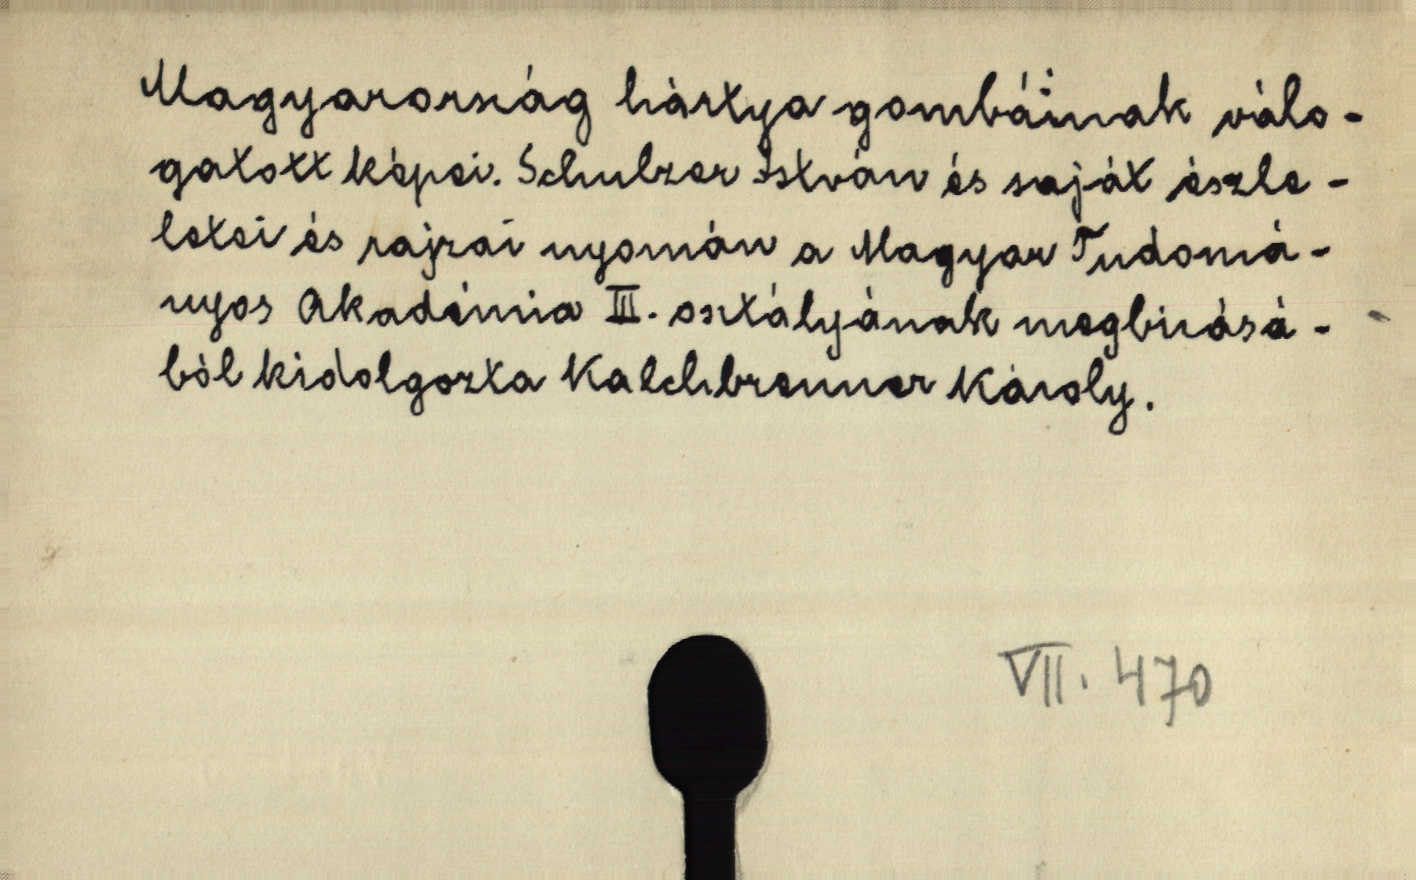 Magyarország hártya gombáinak válo-
gatott képei. Schulzer István és saját észle-
letei és rajzai nyomán a Magyar Tudomá-
nyos Akadémia III. osztályának megbizásá-
ból kidolgozta Kalchbrenner Károly.
VII. 470